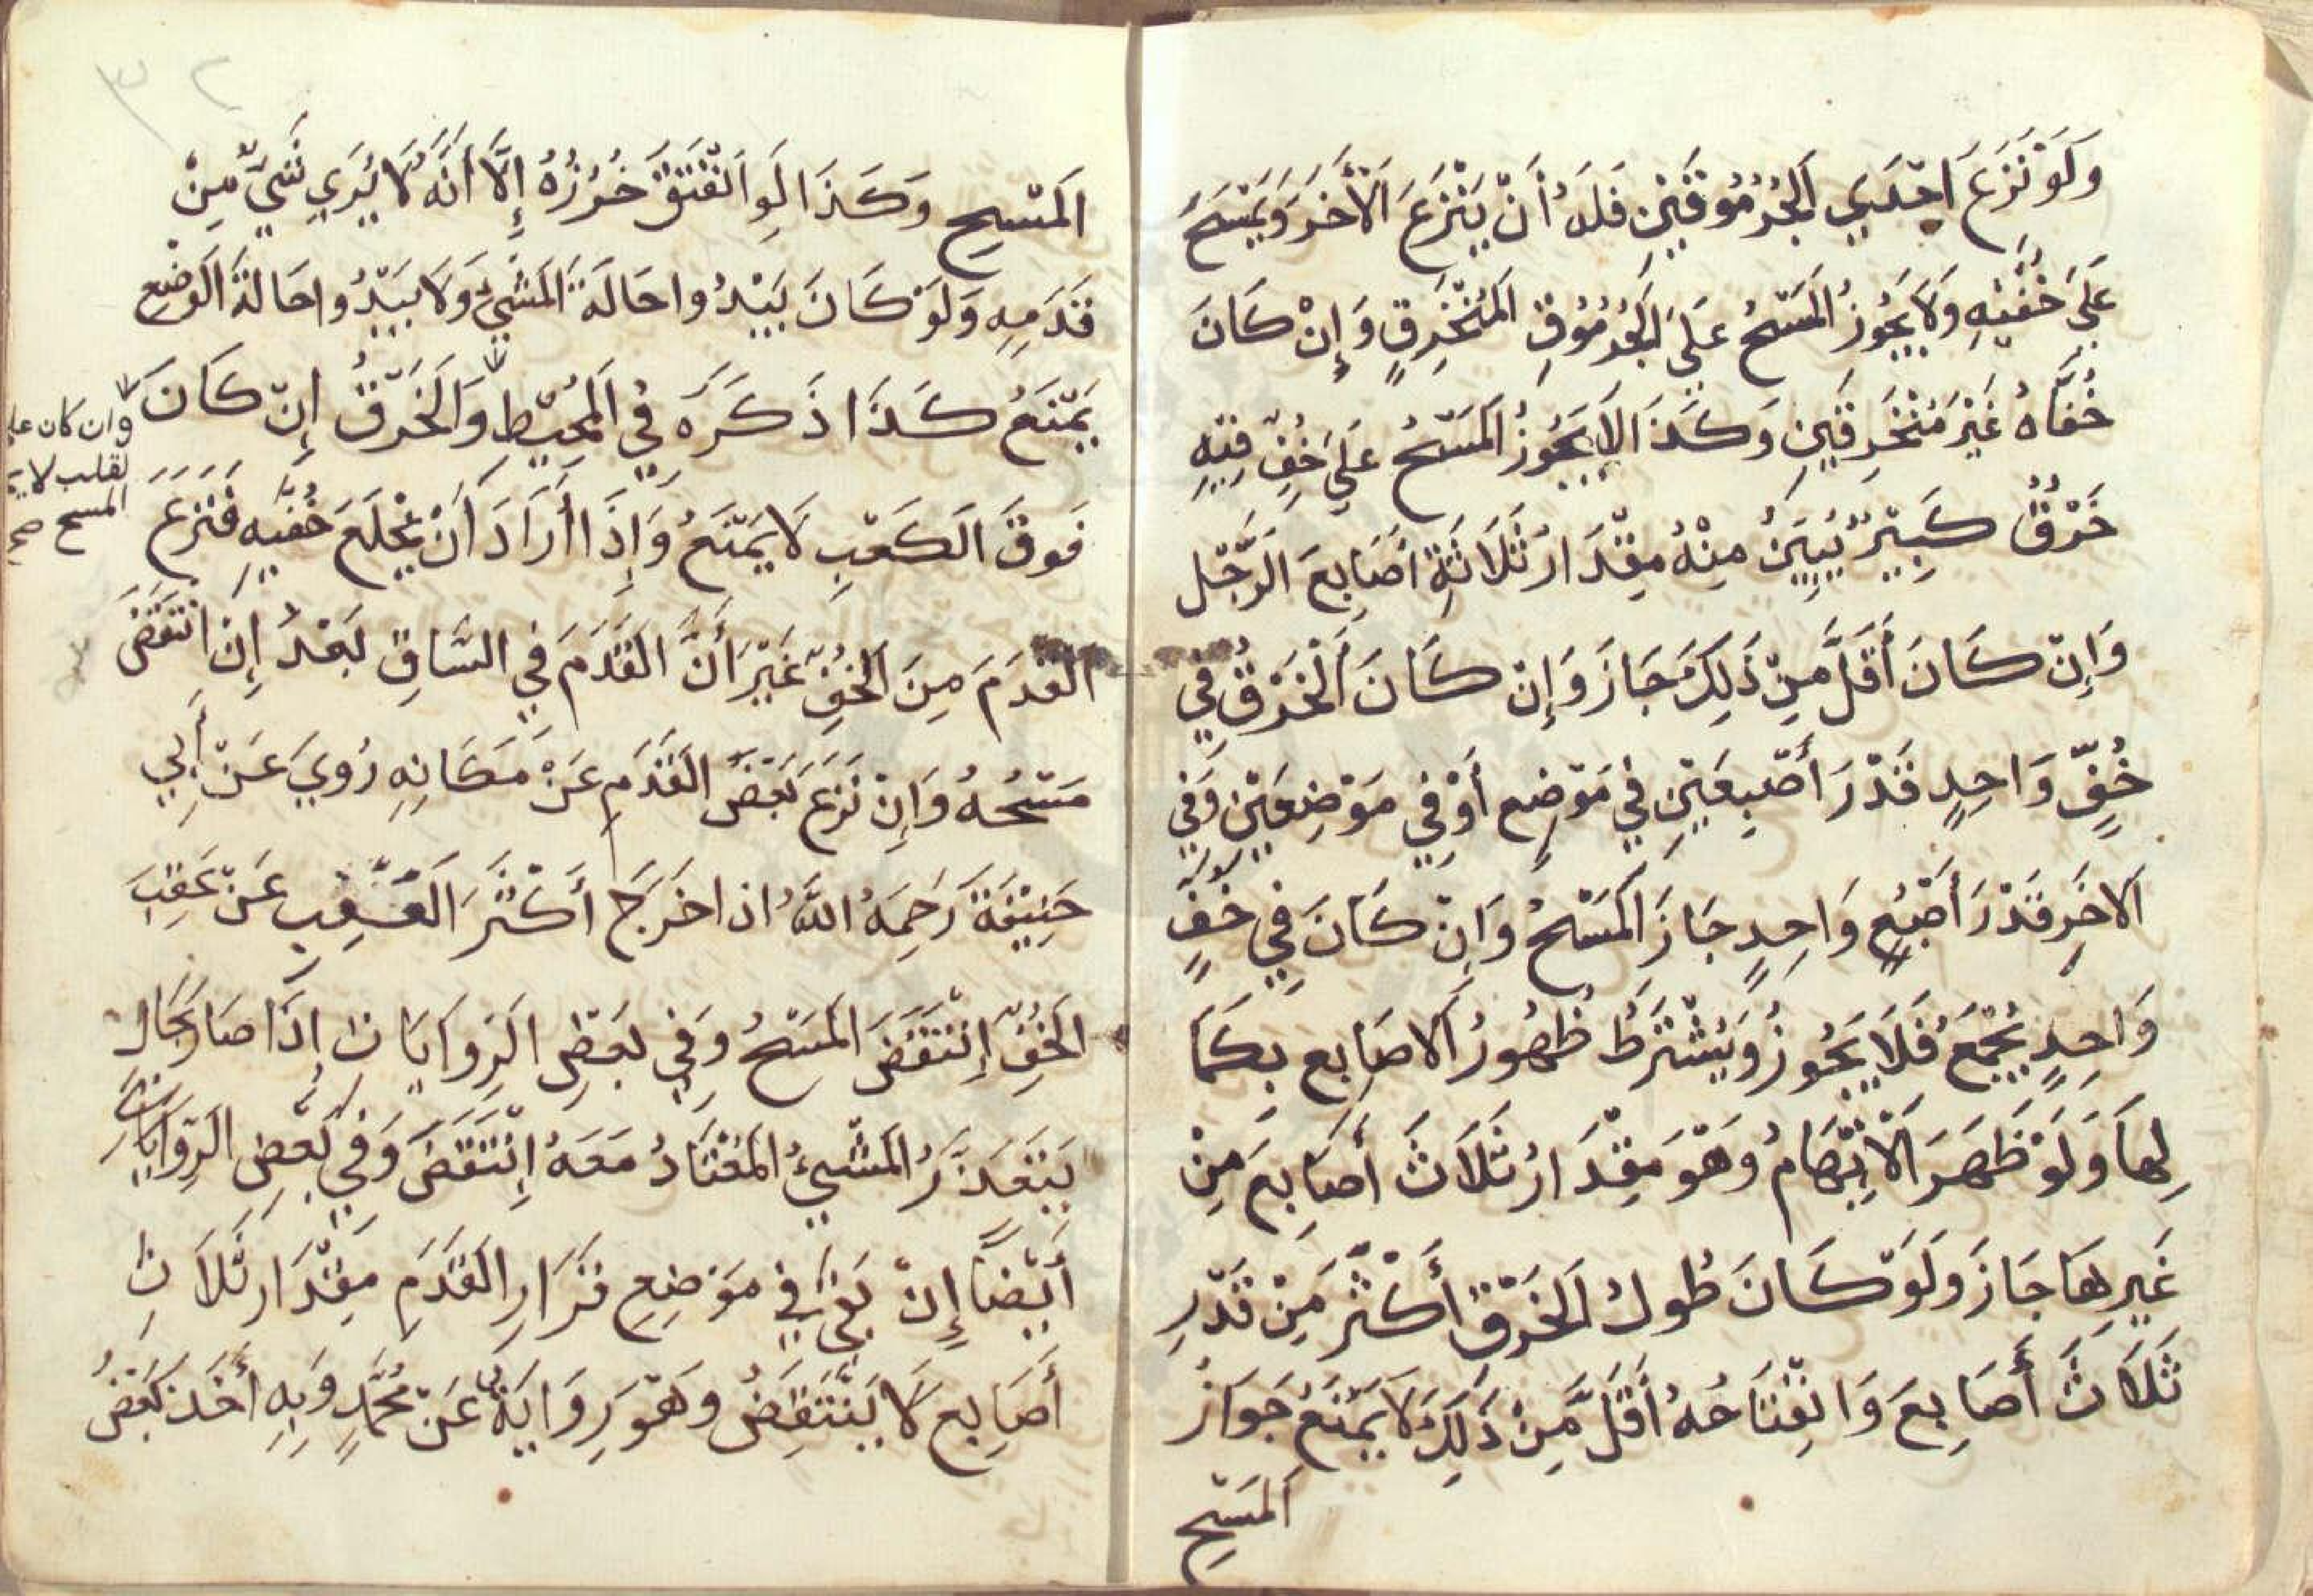 وَلَوْ نَزَعَ اِحْدَي الْجُرْمُوقَيْنِ فَلَهُ أَنْ يَنْزَعَ الْأَخَرَ وَيَمْسَحَ
عَلَيَ خُفَّيْهِ وَلَا يَجُوزُ الْمَسْحُ عَلَيَ الْجُرْمُوقِ الْمُنْخَرِقِ وَإِنْ كَانَ
خُفَّاهُ غَيْرَ مُنْخَرِقَيْنِ وَكَذَا لَا يَجُوزُ الْمَسْحُ عَلَيَ خُفٍّ فِيْهِ
خَرْقٌ كَبِيْرٌ يُبِيَنُ مِنْهُ مِقْدَارُ ثَلَاثَةِ أَصَابِعَ الرَّجْلِ
وَإِنْ كَانَ أَقَلَّ مِنْ ذَلِكَ جَازَ وَإِنْ كَانَ الْخَرْقُ فِي
خُفٍّ وَاحِدٍ قَدْرَ أَصْبِعَيْنِ فِي مَوْضِعٍ أَوْ فِي مَوْضِعَيْنِ وَفِي
الاخَرِ قَدْرَ أَصْبُعٍ وَاحِدٍ جَازَ الْمَسْحُ وَاِنْ كَانَ فِي خُفٍّ
وَاحِدٍ يُجْمَعُ فَلَا يَجُوزُ وَيُشْتَرَطُ ظُهُورُ الْاصَابِعِ بِكَمَا
لِهَا وَلَوْ ظَهَرَ الْاِبْهَامُ وَهْوَ مِقْدَارُ ثَلَاثَ أَصَابِعَ مِنْ
غَيْرِهَا جَازَ وَلَوْ كَانَ طُولُ الْخَرْقِ أَكْثَرَ مِنْ قَدْرِ
ثَلَاثَ أَصَابِعَ وَانْفِتَاحُهُ أَقَلَّ مِنْ ذَلِكَ لَا يَمْنَعُ جَوَازُ
الْمَسْحِ
٣٢
الْمَسْحِ وَكَذَا لَوِ انْفَتَقَ خُرُزُهُ إِلَّا أَنَّهُ لَا يُرَي شَيٌْ مِنْ
قَدَمِهِ وَلَوْ كَانَ يَبْدُوا حَالَةَ الْمَشْيِ وَلَا يَبْدُوا حَالَةَ الْوَضْعِ
يَمْنَعُ كَذَا ذَكَرَهُ فِي الْمُحِيْطِ وَالْخَرْقُ إِنْ كَانَ
وان كان علي
لقلب لا
المسح صح
فَوقَ الْكَعْبِ لَا يَمْنَعُ وَإِذَا أَرَادَ أَنْ يَخْلَعَ خُفَّيْهِ فَنَزَعَ
الْقَدَمَ مِنَ الْخُفِّ غَيْرَ أَنَّ الْقَدَمَ فِي السَّاقِ بَعْدُ إِنِ انْتَقَضَ
مَسْحُهُ وَاِنْ نَزَعَ بَعْضَ الْقَدَمِ عَنْ مَكَانِهِ رُوِيَ عَنْ أَبِي
حَنِيْفَةَ رَحِمَهُ اللَّهُ اذا خَرَجَ أَكْثَرَ الْعَقِبِ عَنْ عَقِبَ
الْخُفِّ إِنْتَقَضَ الْمَسْحُ وَفِي بَعْضِ الرِوَايَاتِ إِذَا صَارَ بِحَالٍ
يَتَعَذَّرُ الْمَشْيُ الْمُعْتَادُ مَعَهُ إِنْتَقَضَ وَفِي بَعْضِ الرِّوَايَاتِ
أَيْضًا إِنْ بَقِيَ فِي مَوْضِعِ قَرَارِ الْقَدَمِ مِقْدَارُ ثَلَاثِ
أَصَابِعَ لَا يَنْتَقِضُ وَهْوَ رِوَايَةٌ عَنْ مُحَمَّدٍ وَبِهِ أَخَذَ بَعْضُ